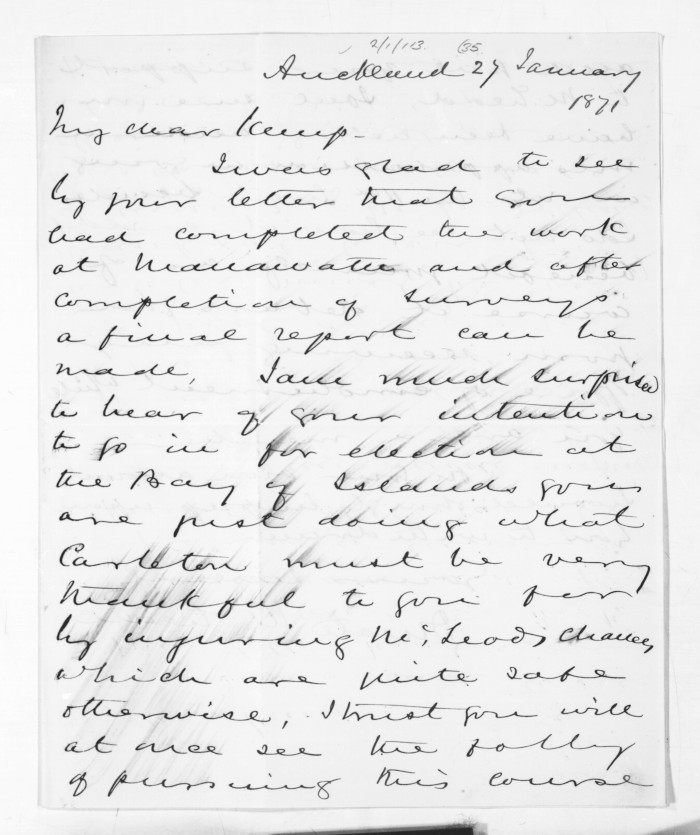 2/1/113. (35
Auckland 27 January
1871
My dear Kemp -
I was glad to see
by your letter that you
had completed the work
at Manawatu and after
completion of surveys
a final report can be
made. I am much surprised
to hear of your intention
to go in for election at
the Bay of Islands you
are just doing what
Carleton must be very
thankful to you for
by injuring McLeod's chances
which are quite safe
otherwise, I trust you will
at once see the folly
of pursuing this course